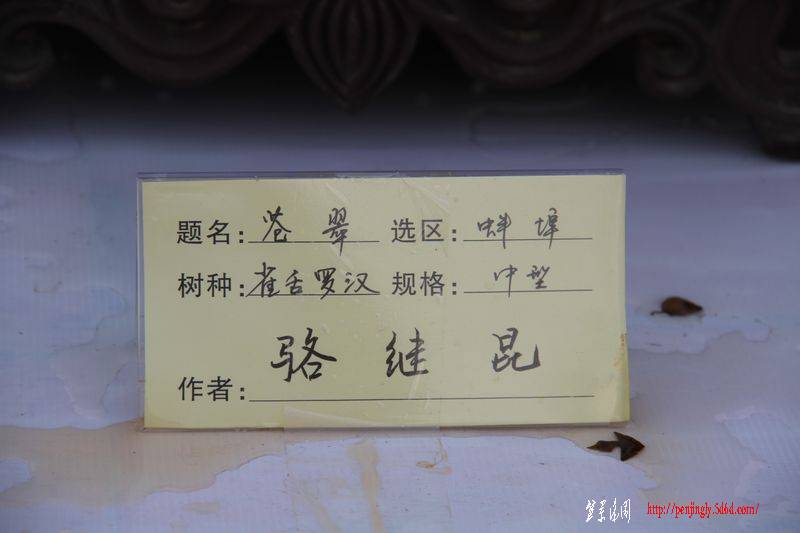 题名：苍翠 选区：蚌埠
树种：雀舌罗汉 规格：中型
作者：骆继昆
盆景乐园 http://penjingly.5d6d.com/